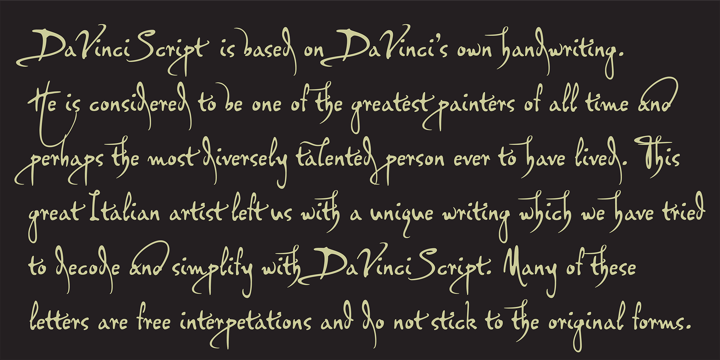 DaVinci Script is based on DaVinci's own handwriting.
He is considered to be one of the greatest painters of all time and
perhaps the most diversely talented person ever to have lived. This
great Italian artist left us with a unique writing which we have tried
to decode and simplify with DaVinci Script. Many of these
letters are free interpetations and do not stick to the original forms.